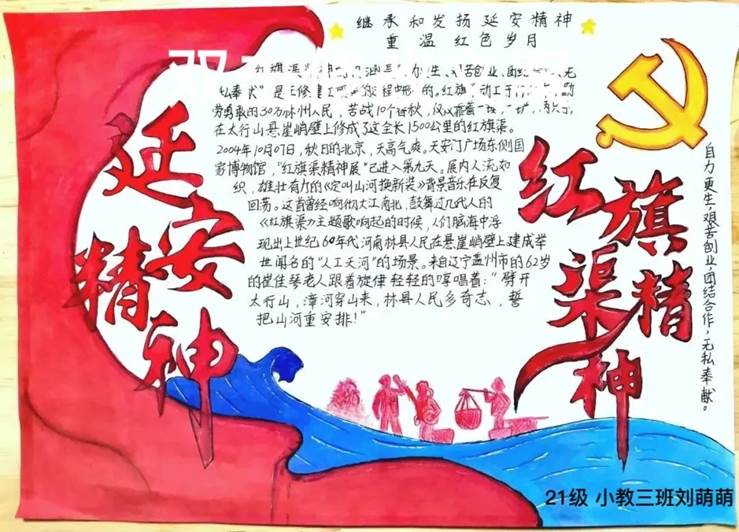 继承和发扬延安精神
重温红色岁月
延安精神
红旗渠精神
是
红旗
动工于
勤劳勇敢的30万林州人民，苦战10个春秋，仅仅靠着一
在太行山悬崖峭壁上修成了这全长1500公里的红旗渠。
2004年10月07日，秋日的北京，天高气爽。天安门广场东侧国
家博物馆，"红旗渠精神展"已进入第九天。展内人流如
织，雄壮有力的《定叫山河换新装》背景音乐在反复
回荡。这首曾经响彻大江南北，鼓舞过几代人的
《红旗渠》主题歌响起的时候，人们脑海中浮
现出上世纪60年代河南林县人民在悬崖峭壁上建成举
世闻名的"人工天河"的场景。来自辽宁盖州市的62岁
的崔佳琴老人跟着旋律轻轻的哼唱着："劈开
太行山，漳河穿山来，林县人民多奇志，誓
把山河重安排！"
自力更生，艰苦创业，团结合作，无私奉献。
21级 小教三班刘萌萌